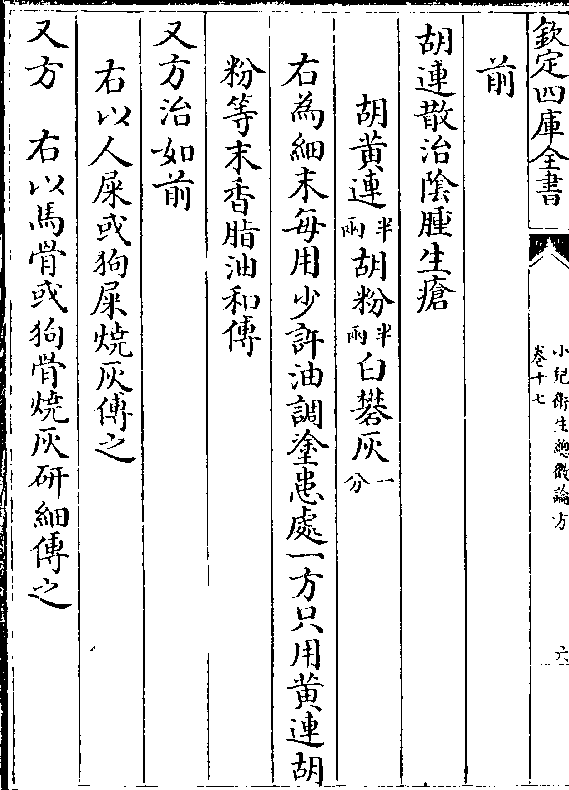 欽定四庫全書
小兒衛生總微論方
卷十七
六
前
胡連散治陰腫生瘡
胡黃連半兩胡粉半兩白礬灰一分
右為細末每用少許油調塗患處一方只用黃連胡
粉等末香脂油和傅
又方治如前
右以人屎或狗屎燒灰傅之
又方 右以馬骨或狗骨燒灰研細傅之